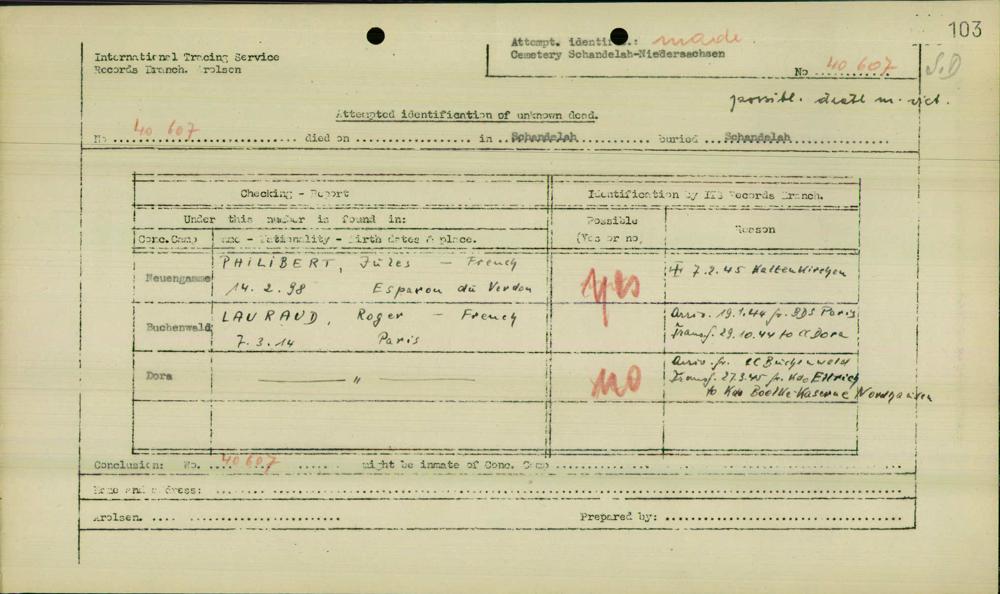 103
International Tracing Service
Records Branch. Arolsen
Attempt. identif.: made
Cemetery Schandelah-Niedersachsen
No 40 607
S.D
possibl. death m. vict.
Attempted identification of unknown dead.
No 40 607 died on in Schandelah buried Schandelah
Checking - Report
Identification by ITS Records Branch.
Under this number is found in:
Possible
(Yes or no)
Reason
Conc.Camp
Name - Nationality - Birth dates & place.
Neuengamme
PHILIBERT, Jules - French
14. 2. 98 Esparou du Verdon
yes
7.2.45 Kaltenkirchen
Buchenwald
LAURAUD, Roger - French
7. 3. 14 Paris
Arriv. 19.1.44 fr. BDS Paris
Transf. 29.10.44 to CC Dora
Dora
"
no
Arriv. fr. CC Buchenwald
Transf. 27.3.45 fr. Kdo Ellrich
to Kdo Boelke-Kaserne Nordhausen
Conclusion: No. 40 607 might be inmate of Conc. Camp
Name and address:
Arolsen.
Prepared by: